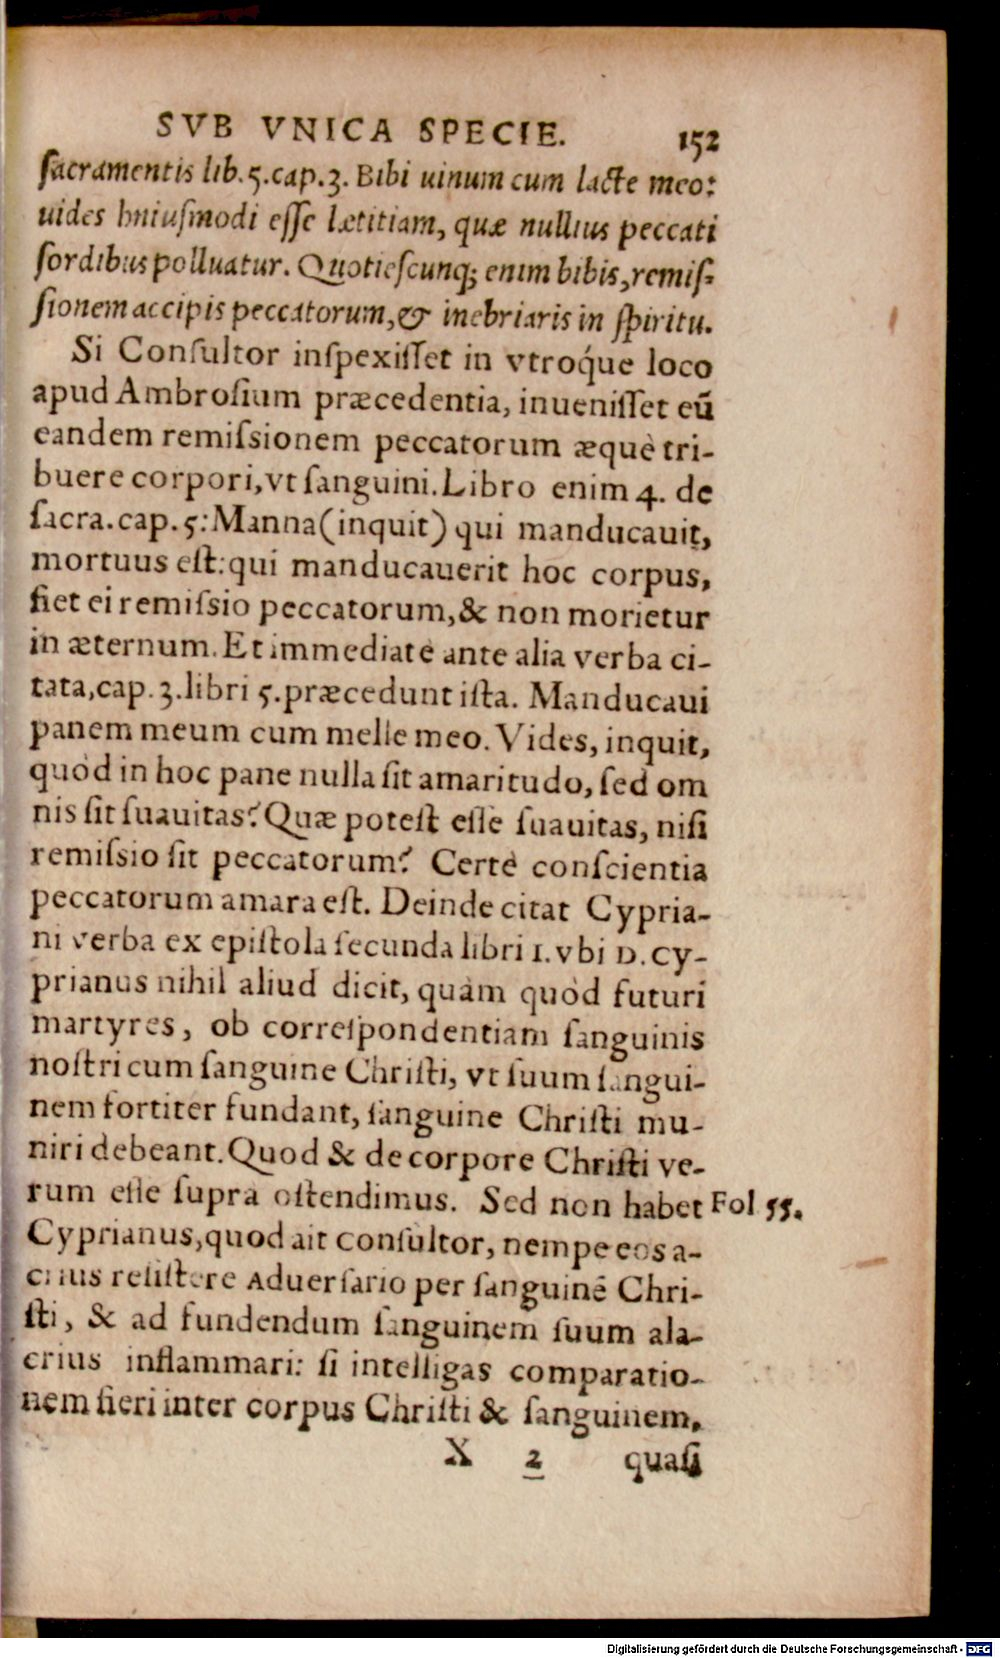 SVB VNICA SPECIE. 152
sacramentis lib. 5. cap. 3. Bibi uinum cum lacte meo:
uides huiusmodi esse lætitiam, quæ nullius peccati
sordibus polluatur. Quotiescunq; enim bibis, remis-
sionem accipis peccatorum, & inebriaris in spiritu.
Si Consultor inspexisset in vtroq́ue loco
apud Ambrosium præcedentia, inuenisset eū
eandem remissionem peccatorum æquè tri-
buere corpori, vt sanguini. Libro enim 4. de
sacra. cap. 5: Manna (inquit) qui manducauit,
mortuus est: qui manducauerit hoc corpus,
fiet ei remissio peccatorum, & non morietur
in æternum. Et immediatè ante alia verba ci-
tata, cap. 3. libri 5. præcedunt ista. Manducaui
panem meum cum melle meo. Vides, inquit,
quòd in hoc pane nulla sit amaritudo, sed om
nis sit suauitas? Quæ potest esse suauitas, nisi
remissio sit peccatorum? Certè conscientia
peccatorum amara est. Deinde citat Cypria-
ni verba ex epistola secunda libri 1. vbi D. Cy-
prianus nihil aliud dicit, quàm quòd futuri
martyres, ob correspondentiam sanguinis
nostri cum sanguine Christi, vt suum sangui-
nem fortiter fundant, sanguine Christi mu-
niri debeant. Quod & de corpore Christi ve-
rum esse supra ostendimus. Sed non habet Fol 55.
Cyprianus, quod ait consultor, nempe eos a-
crius resistere Aduersario per sanguinē Chri-
sti, & ad fundendum sanguinem suum ala-
crius inflammari: si intelligas comparatio-
nem fieri inter corpus Christi & sanguinem,
X 2 quasi
Digitalisierung gefördert durch die Deutsche Forschungsgemeinschaft - DFG